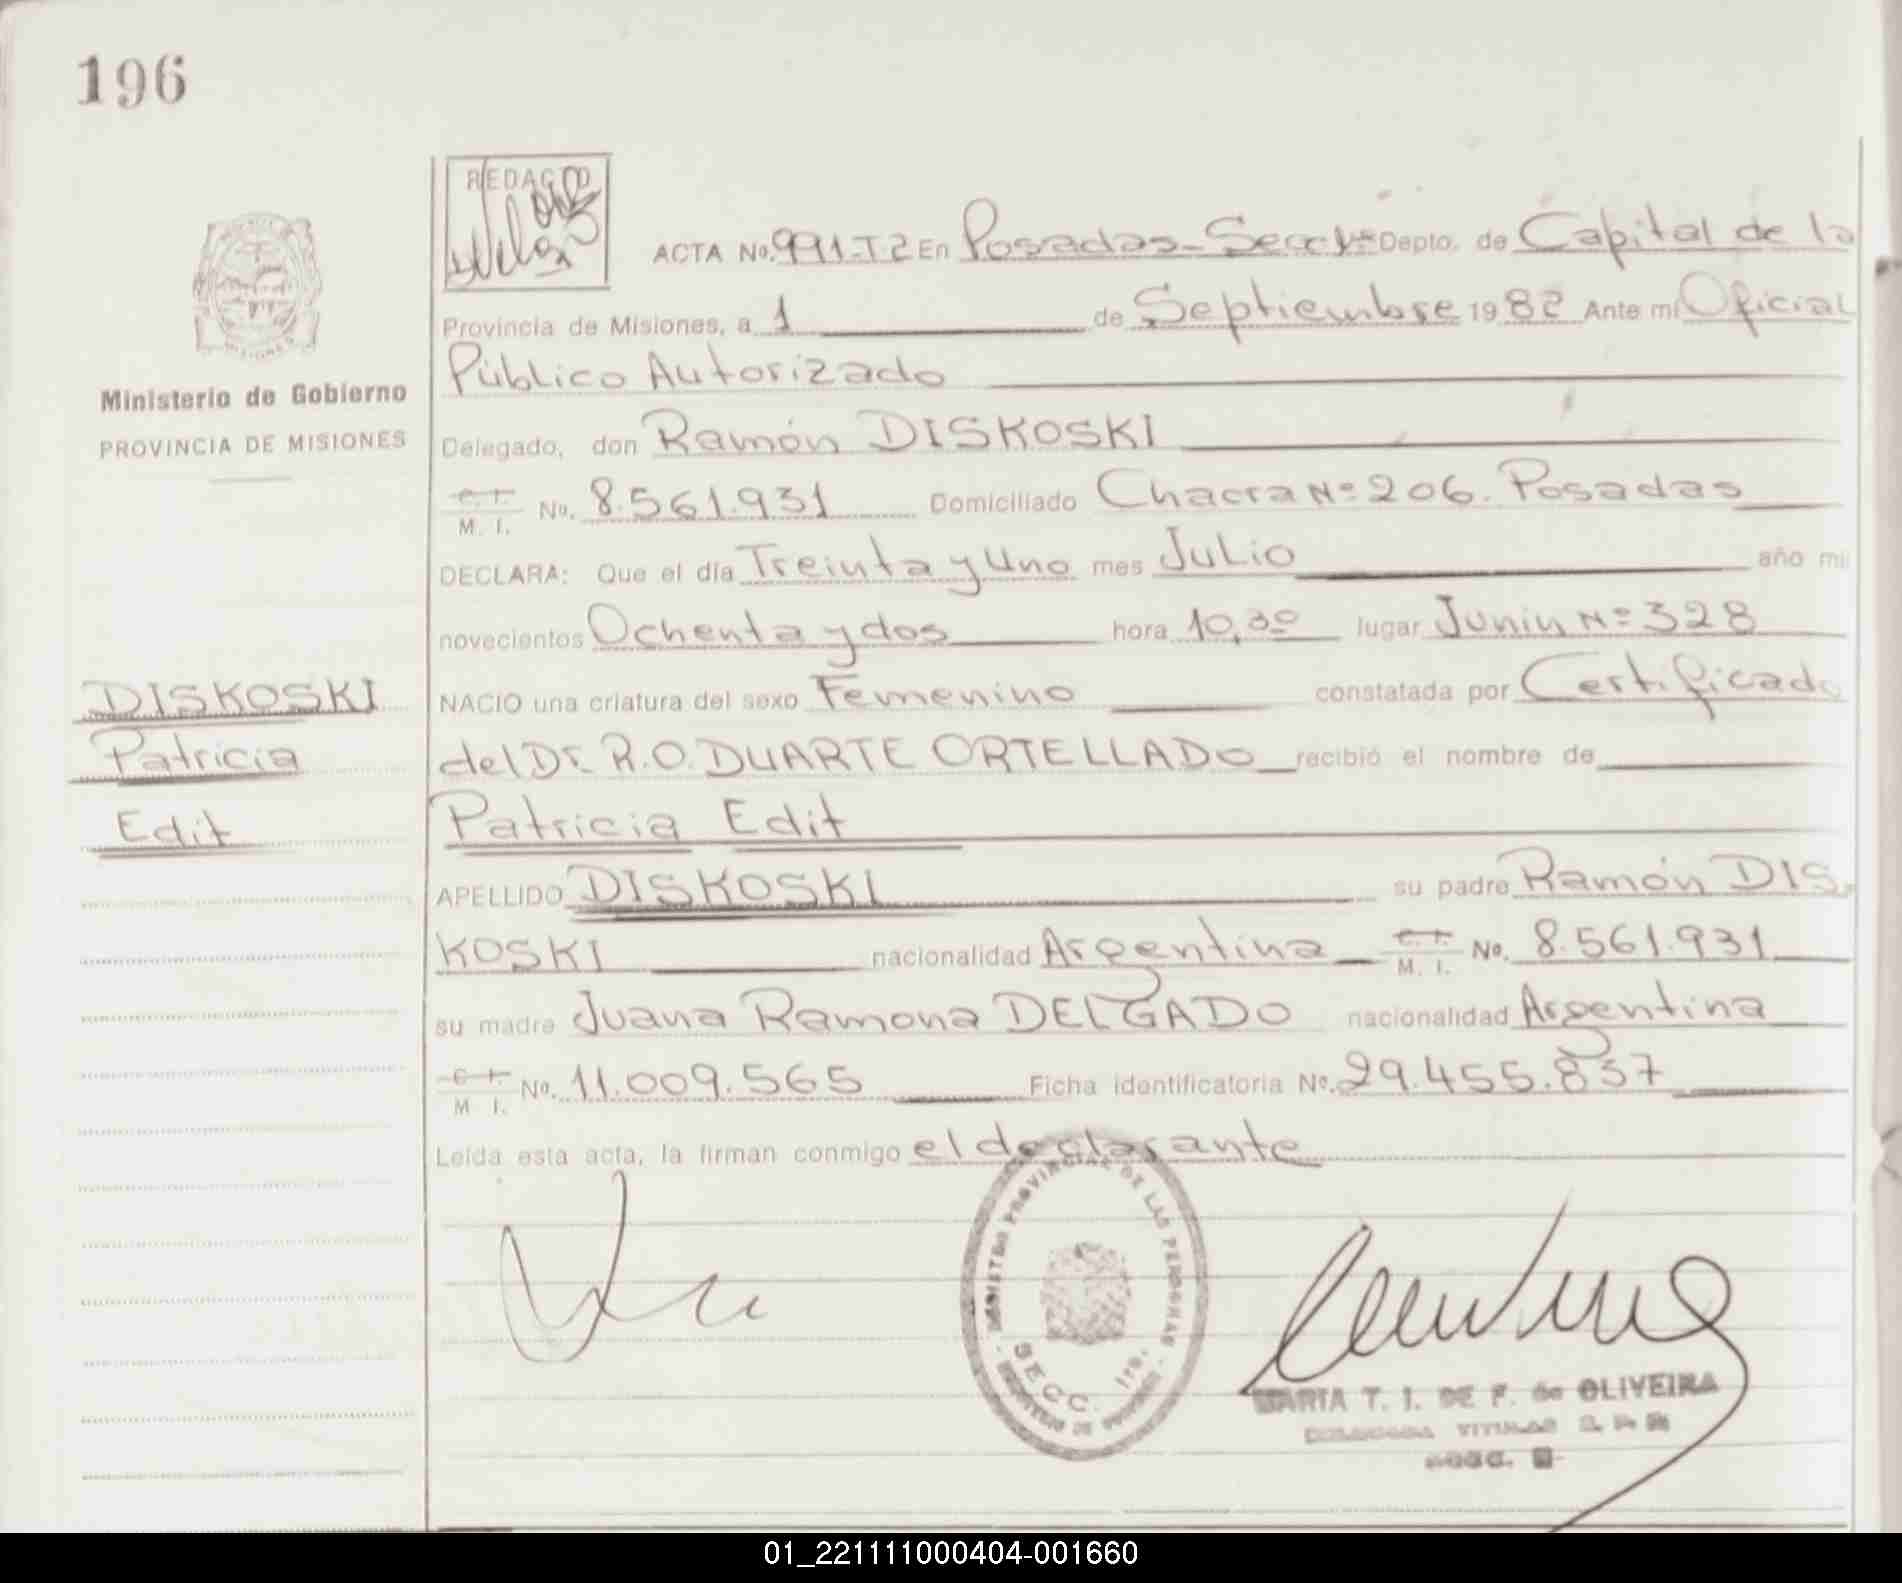 196
REDACTO
ACTA No. 991-T2 En Posadas-Secc 1ª Depto. de Capital de la
Provincia de Misiones, a 1 de Septiembre 1982 Ante mi Oficial
Público Autorizado
Ministerio de Gobierno
PROVINCIA DE MISIONES
Delegado, don Ramón DISKOSKI
C. I. M. I. No. 8.561.931 Domiciliado Chacra Nº 206. Posadas
DECLARA: Que el día Treinta y Uno mes Julio año mil
novecientos Ochenta y dos hora 10,30 lugar Junin Nº 328
DISKOSKI
Patricia
Edit
NACIO una criatura del sexo Femenino constatada por Certificado
del Dr. R.O. DUARTE ORTELLADO recibió el nombre de
Patricia Edit
APELLIDO DISKOSKI su padre Ramón DIS-
KOSKI nacionalidad Argentina C. I. M. I. No. 8.561.931
su madre Juana Ramona DELGADO nacionalidad Argentina
C. I. M. I. No. 11.009.565 Ficha identificatoria No. 29.455.837
Leída esta acta, la firman conmigo el declarante
REGISTRO PROVINCIAL DE LAS PERSONAS
SECC. 1ra.
MARIA T. I. DE F. de OLIVEIRA
01_221111000404-001660